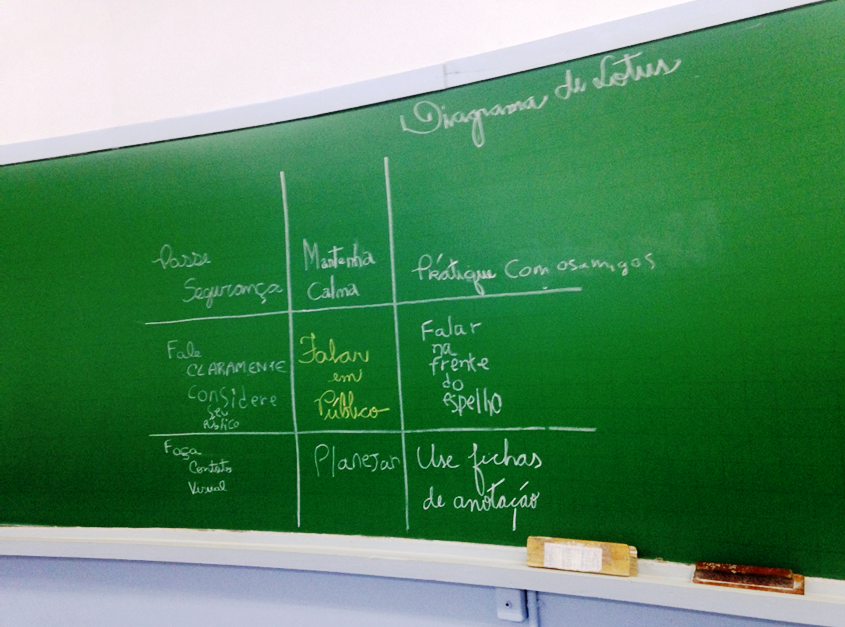 Diagrama de Lotus
Passe
Segurança
Mantenha
Calma
Prátique Com os amigos
Fale
CLARAMENTE
Considere
Seu
Público
Falar
em
Público
Falar
na
frente
do
espelho
Faça
Contato
Visual
Planejar
Use fichas
de anotação